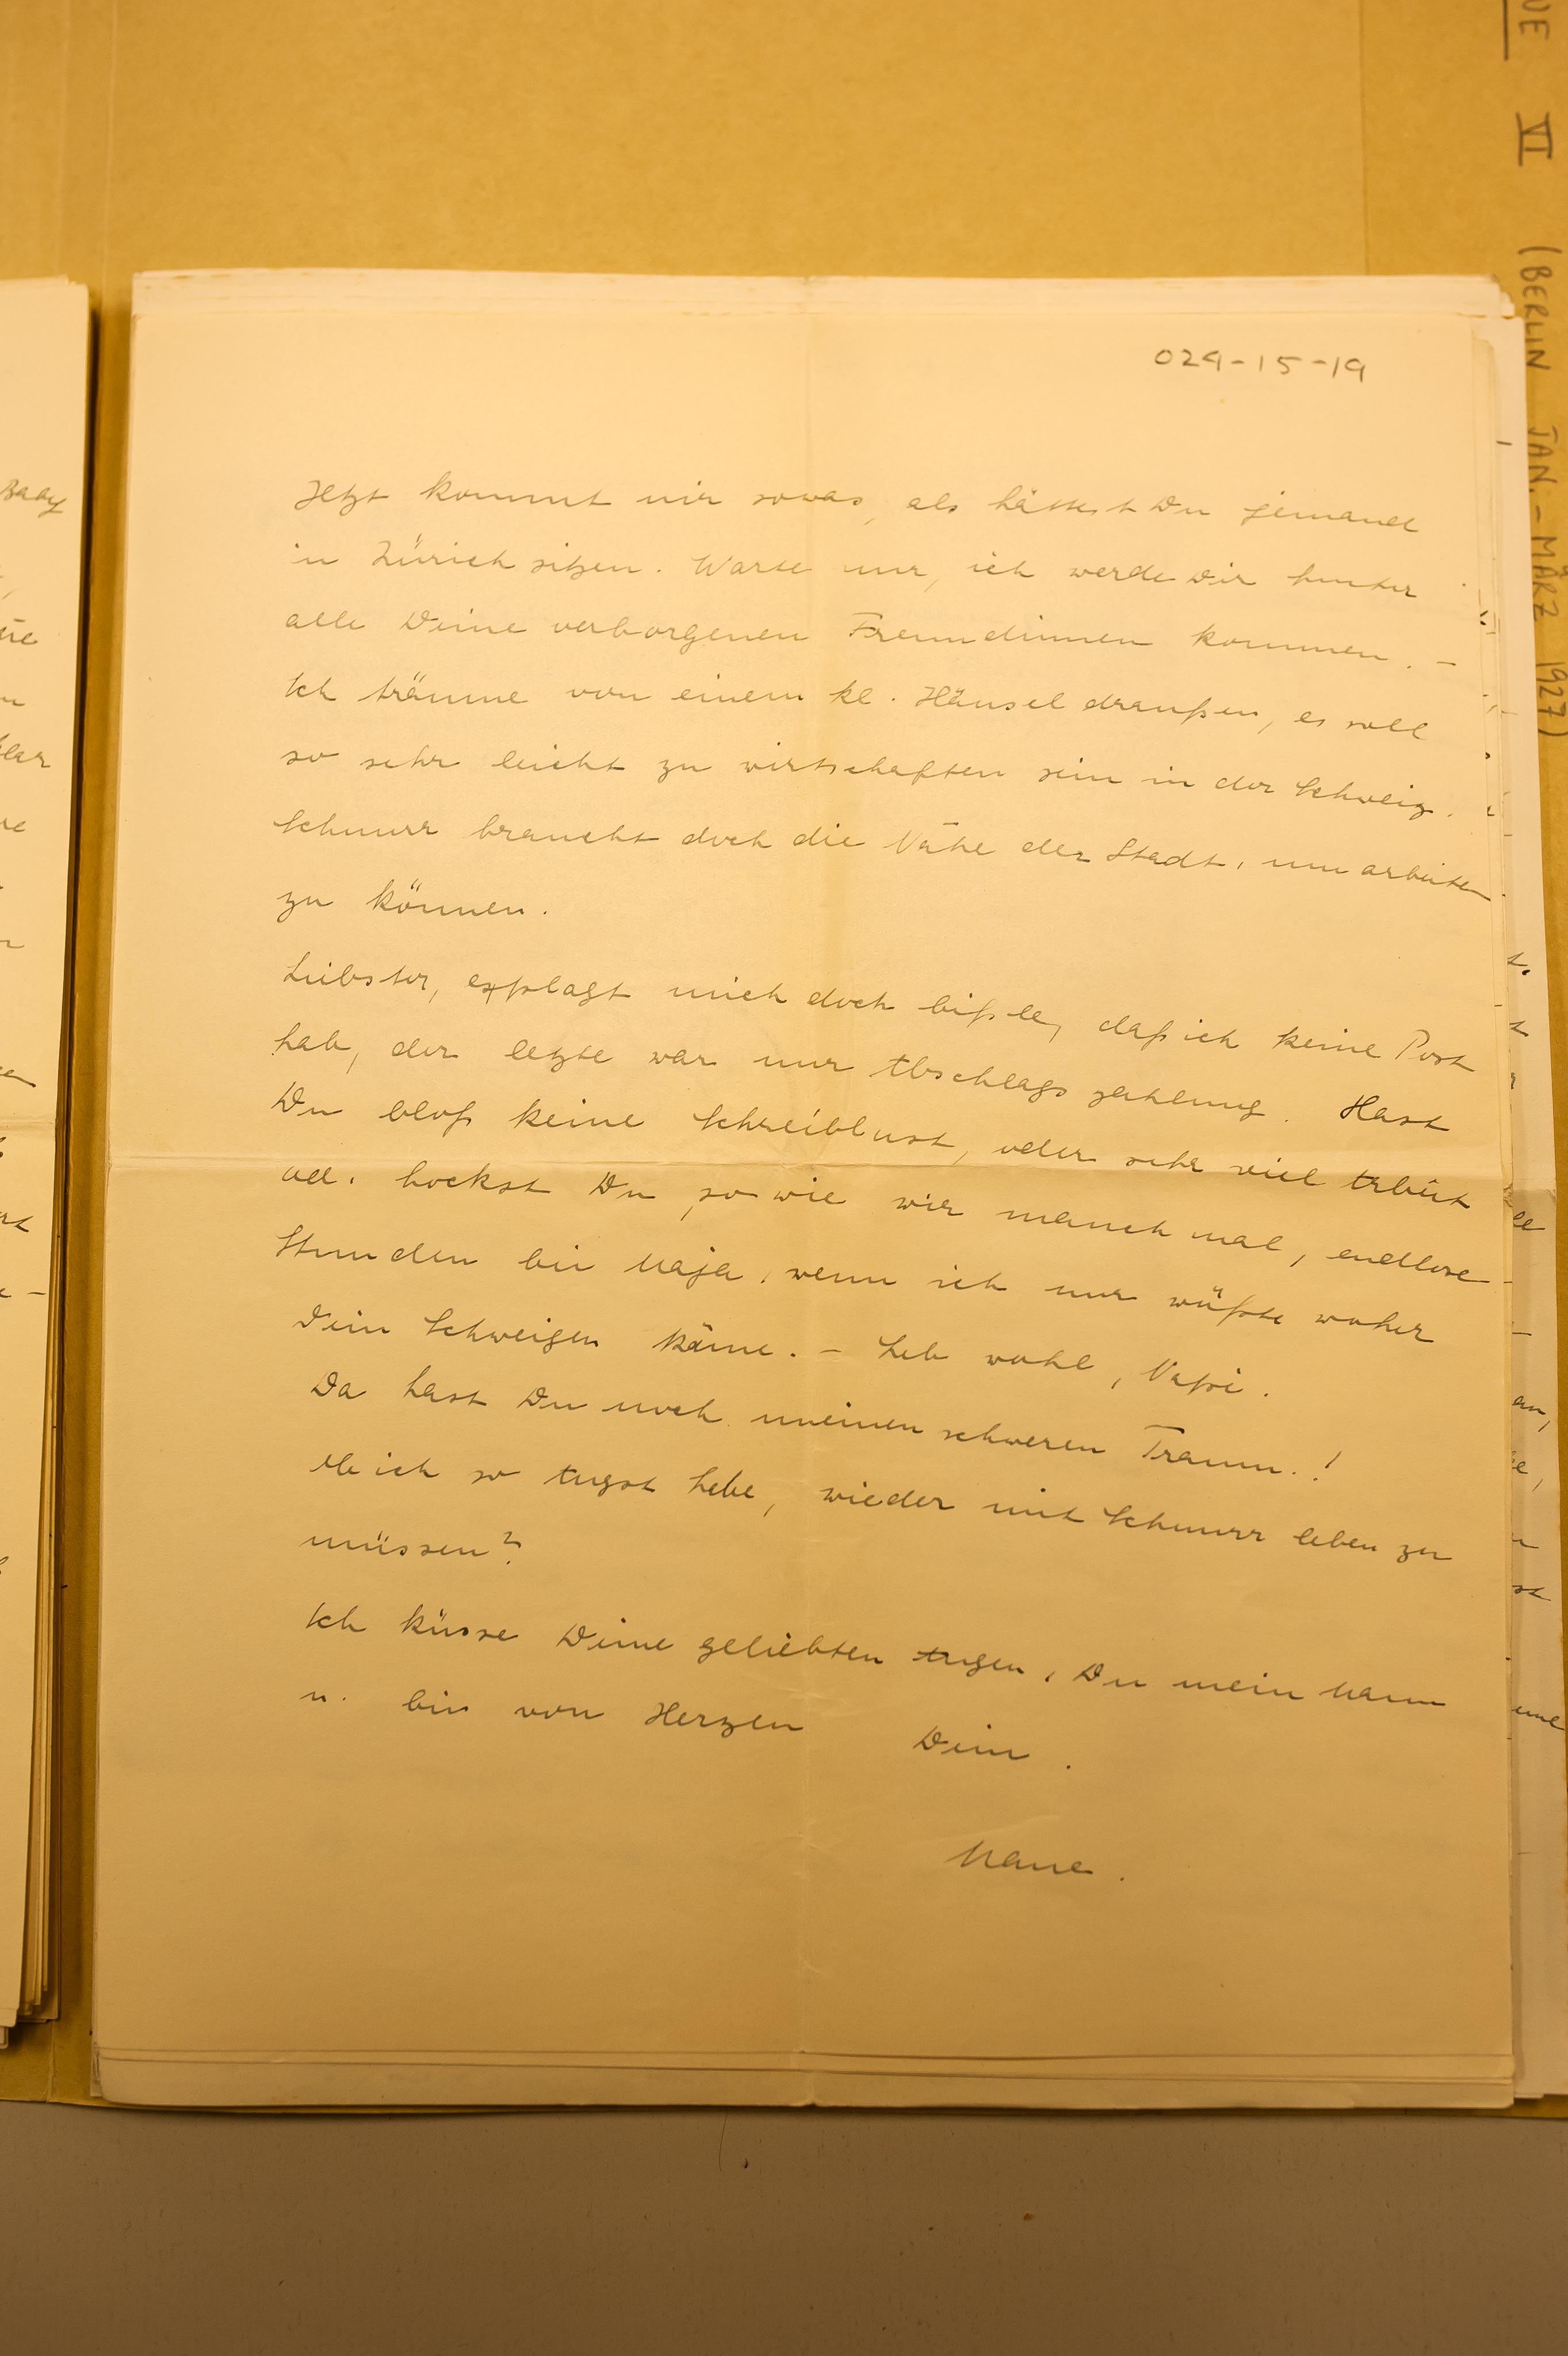 029-15-19
Jetzt kommt mir sowas, als hättest Du jemand
in Zürich sitzen. Warte nur, ich werde Dir hinter
alle Deine verborgenen Freundinnen kommen. –
Ich träume von einem kl. Häusel draußen, es soll
so sehr leicht zu wirtschaften sein in der Schweiz.
Schnurr braucht doch die Nähe der Stadt, um arbeiten
zu können.
Liebster, es plagt mich doch bißle, daß ich keine Post
hab, der letzte war nur Abschlagszahlung. Hast
Du bloß keine Schreiblust, oder sehr viel Arbeit
od. hockst Du, so wie wir manchmal, endlose
Stunden bei Maja, wenn ich nur wüßte woher
Dein Schweigen käme. – Leb wohl,
Da hast Du noch meinen schweren Traum.!
Ob ich so Angst habe, wieder mit Schnurr leben zu
müssen?
Ich küsse Deine geliebten Augen, Du mein Mann
u. bin von Herzen Dein.
Maue.
VI (BERLIN JAN. – MÄRZ 1927)